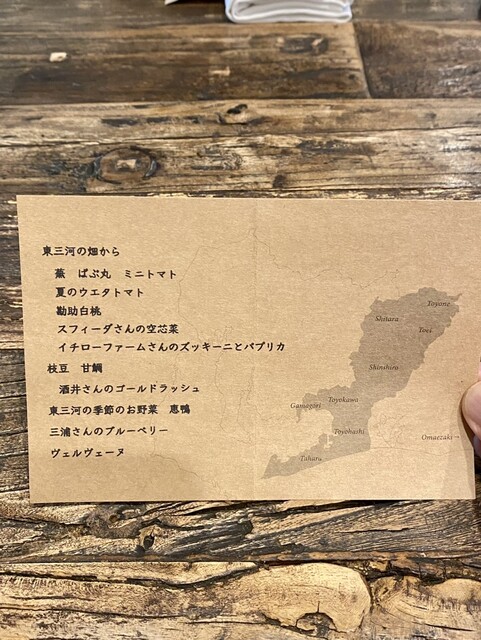 東三河の畑から
蕪　ばぶ丸　ミニトマト
夏のウエタトマト
勘助白桃
スフィーダさんの空芯菜
イチローファームさんのズッキーニとパプリカ
枝豆　甘鯛
酒井さんのゴールドラッシュ
東三河の季節のお野菜　恵鴨
三浦さんのブルーベリー
ヴェルヴェーヌ
Toyone
Shitara
Toei
Shinshiro
Toyokawa
Gamagori
Toyohashi
Omaezaki→
Tahara